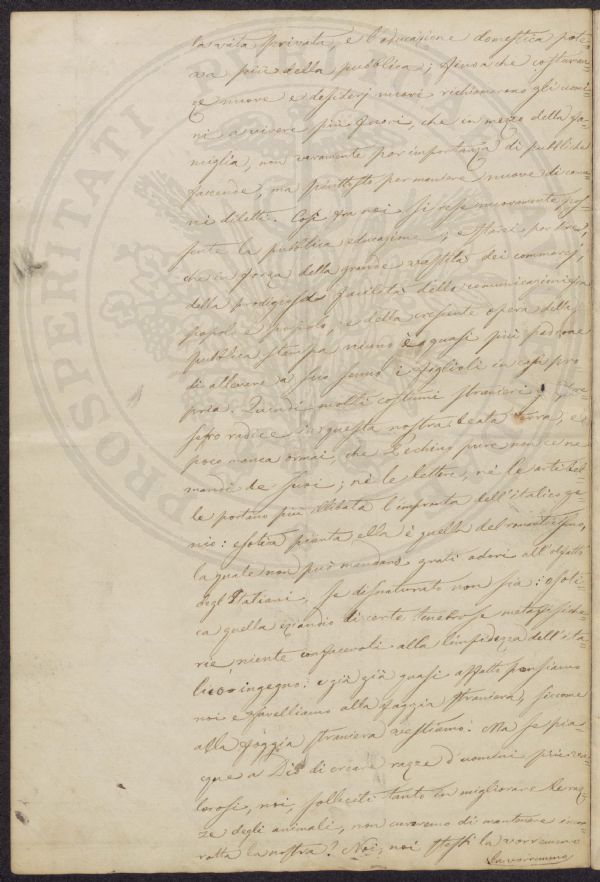 la vita privata, e l'educazione domestica pote-
va più della pubblica; senza che costuman-
ze nuove e desiderj nuovi richiamarono gli uomi-
ni a vivere più fuori, che in mezzo della fa-
miglia, non veramente per importanza di pubbliche
faccende, ma piuttosto per maniere nuove di comu-
ni diletti. Così fra noi si rese nuovamente pos-
sente la pubblica educazione; e
che in forza della grande vastità dei commercj,
della prodigiosa facilità delle comunicazioni fra
popolo e popolo, e della crescente opera della
pubblica stampa niuno è quasi più padrone
di allevare a suo senno i figlioli in casa pro-
pria. Quindi molti costumi stranieri
sero radice in questa nostra beata terra, e
poco manca ormai, che Pechino pure non ce ne
mandi de' suoi; nè le lettere, nè le arti bel-
le portano più illibata l'impronta dell'italico ge-
nio: esotica pianta ella è quella del romanticismo,
la quale non può mandare grati odori all'olfatto
degl'Italiani, se disnaturato non sia: esoti-
ca quella eziandio di certe tenebrose metafisiche-
rie niente confacevoli alla limpidezza dell'ita-
lico ingegno: e già già quasi affatto pensiamo
noi e favelliamo alla foggia straniera, siccome
alla foggia straniera vestiamo. Ma se pia-
cque a Dio di creare razze d'uomini più va-
lorosi, noi, solleciti tanto in migliorare le raz-
ze degli animali, non cureremo di mantenere incor-
rotta la nostra? Noi, noi stessi la vorremmo
la vorremmo
PROSPERITATI PUBLICAE